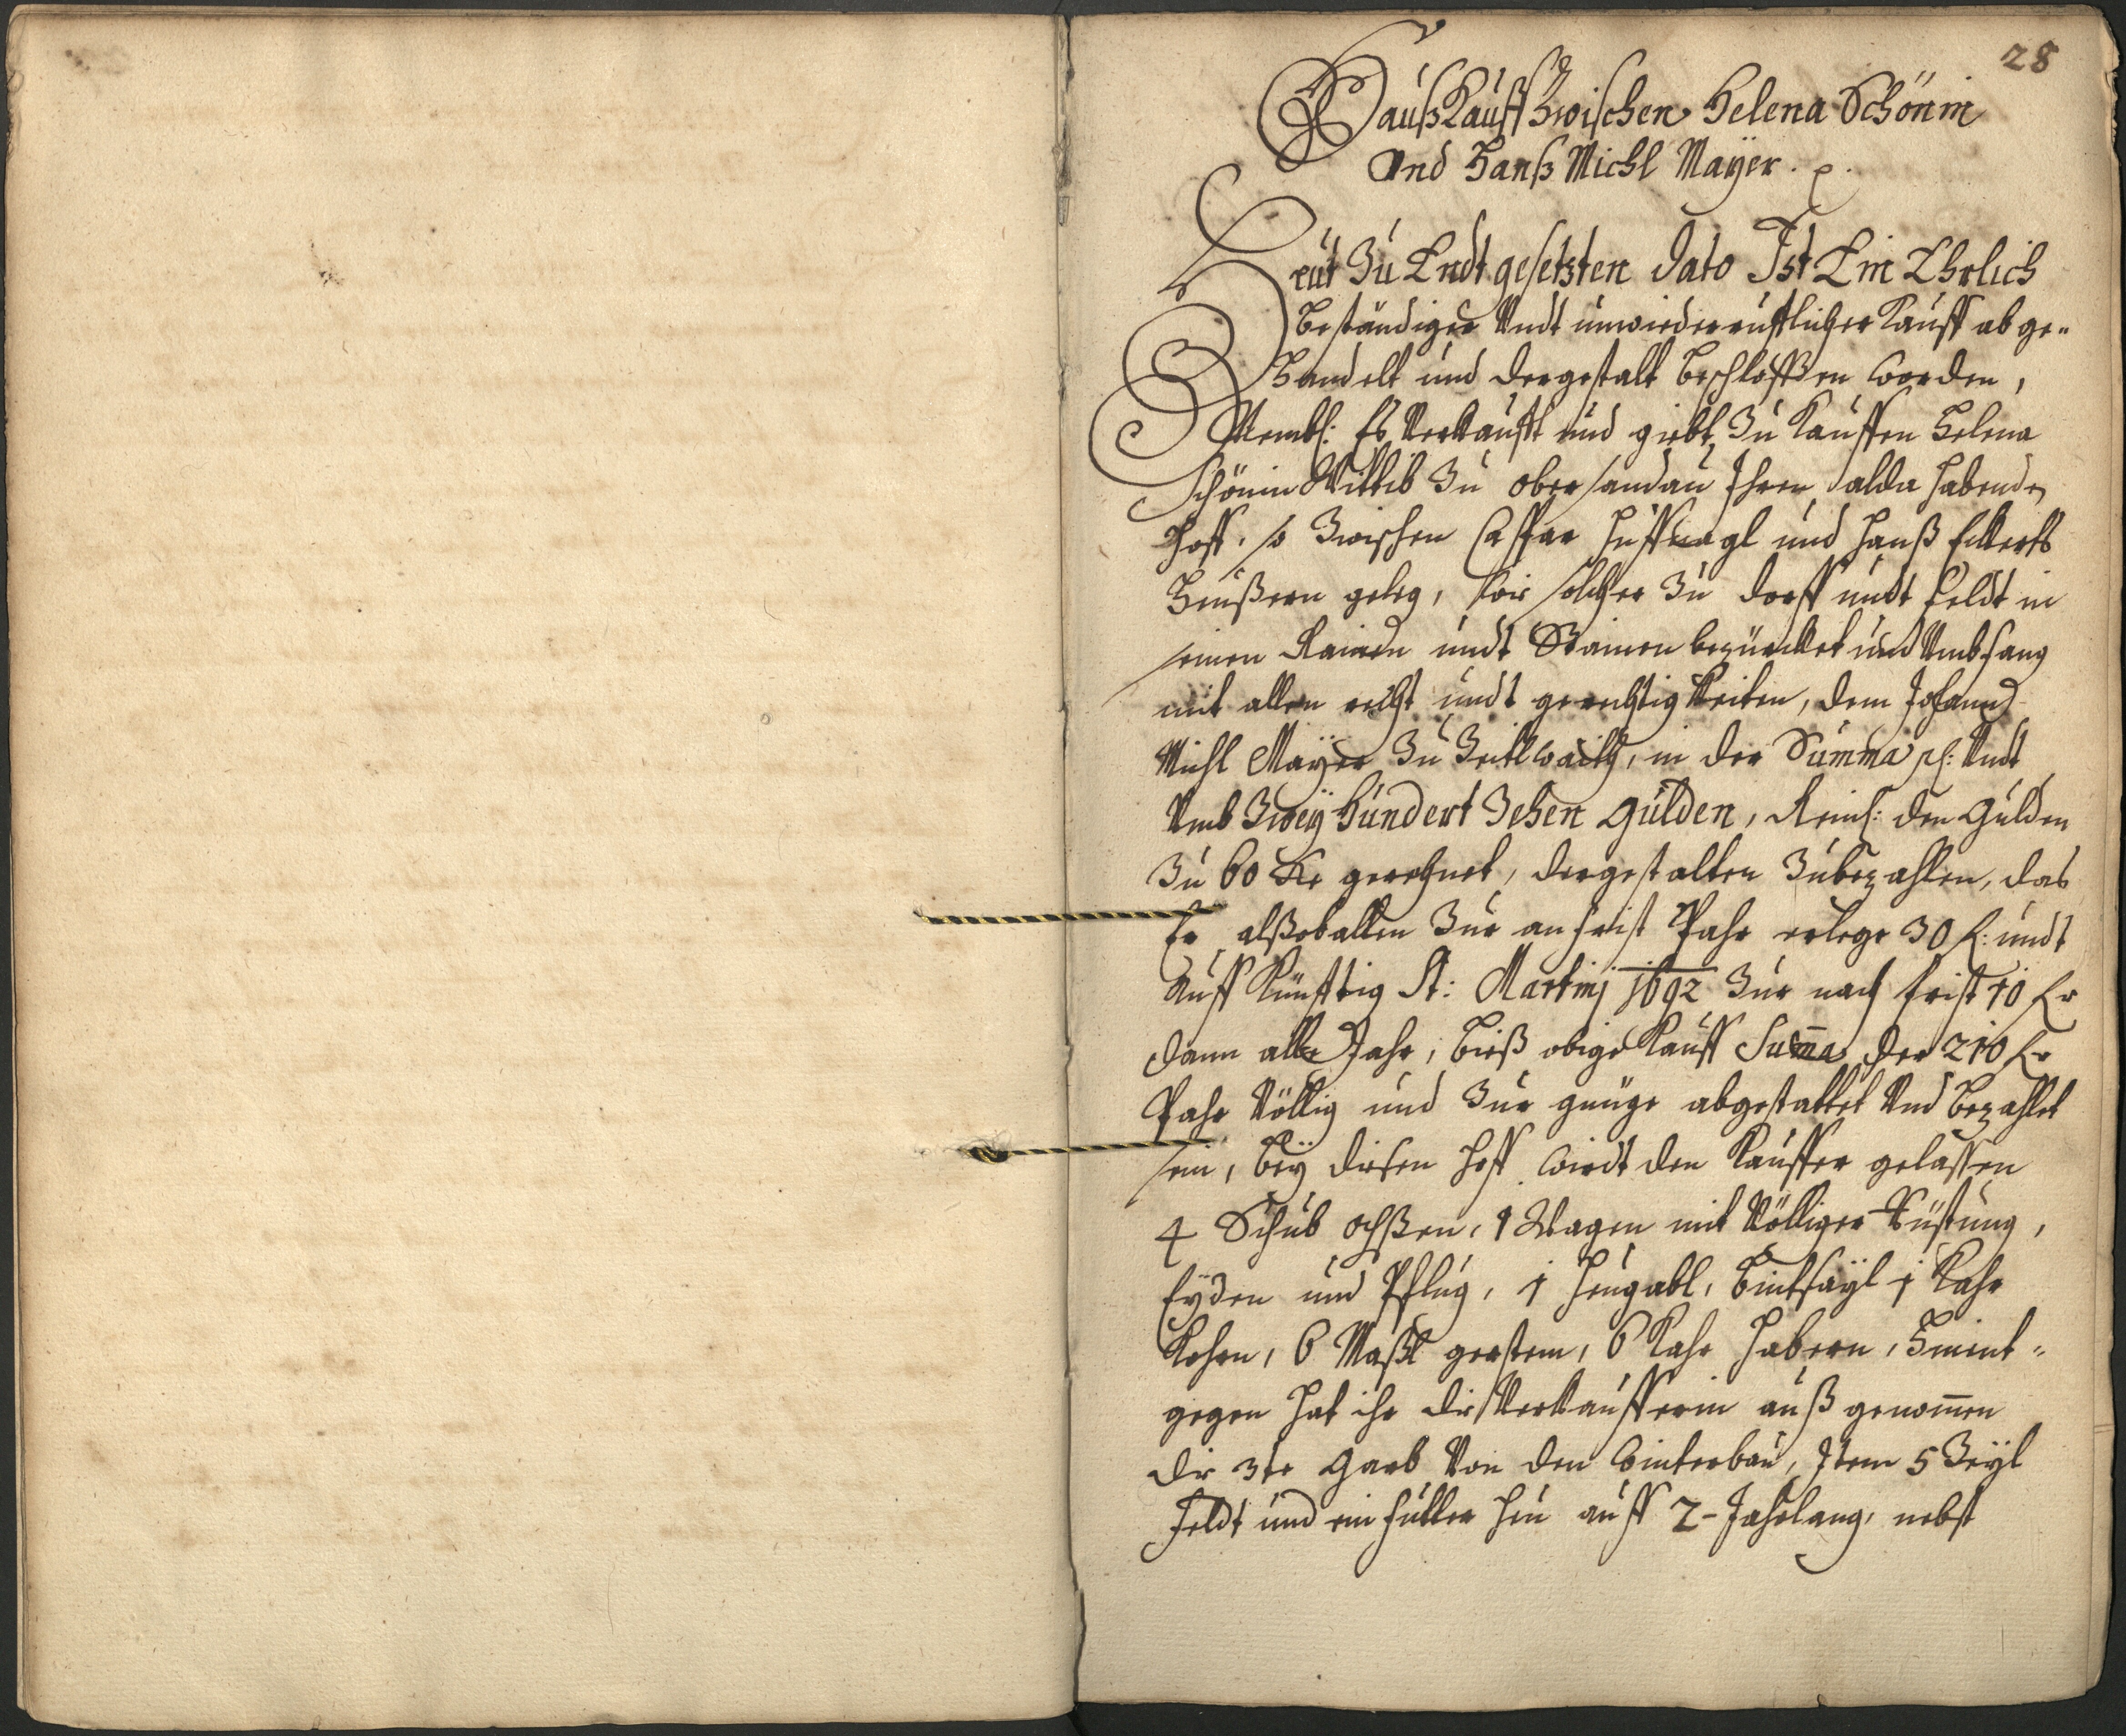 28
Hauß Kauff Zwischen Helena Schönin
Vnd Hanß Michl Mayer. p.
Heut Zu Endt gesetzten dato Ist Ein Ehrlich
Beständiger Vndt unwiederrufflicher Kauff abge-
Handelt und dergestalt beschlossen worden,
Nembl: Es Verkaufft und giebt Zu Kauffen Helena
Schönin Wittib Zu obersandau Ihren alda habenden
Hoff, so Zwischen Caspar Huffnagl und Hanß Eckerts
Heußern geleg, wie solcher Zu dorff undt Feldt in
seinen Rainen undt Stainen bezürcket und Vmbfang
mit allen recht undt gerechtigkeiten, dem Johann
Michl Mayer Zu, in der Summa pl: Vndt
Vmb Zwey Hundert Zehen Gulden, Reinl: den Gulden
Zu 60 Kr gerechnet, dergestalten Zubezahlen, das
Er alßobalten Zur anfrist Pahr erlege 30 fl: undt
Auff Künfftig St: Martinj 1692 Zur nach frist 10 fl
dann alle Jahr, bieß obige Kauff Suma der 210 fl
Pahr Völlig und Zur genüge abgestattet Vnd bezahlet
sein, bey diesen Hoff wirdt den Kauffer gelassen
4 Schub ochßen, 1 Wagen mit Völliger Rüstung,
Eyden und Pflug, 1 Heugabl, bintsayl 1 Kahr
Kohrn, 6 Maßl gersten, 6 Kahr Habern, Hinent-
gegen hat ihr die Verkaufferin auß genomen
die 3te Garb Von den winterbau, Item 5 Beyl
Feldt und ein futter Heu auff 2-Jahrlang, nebst